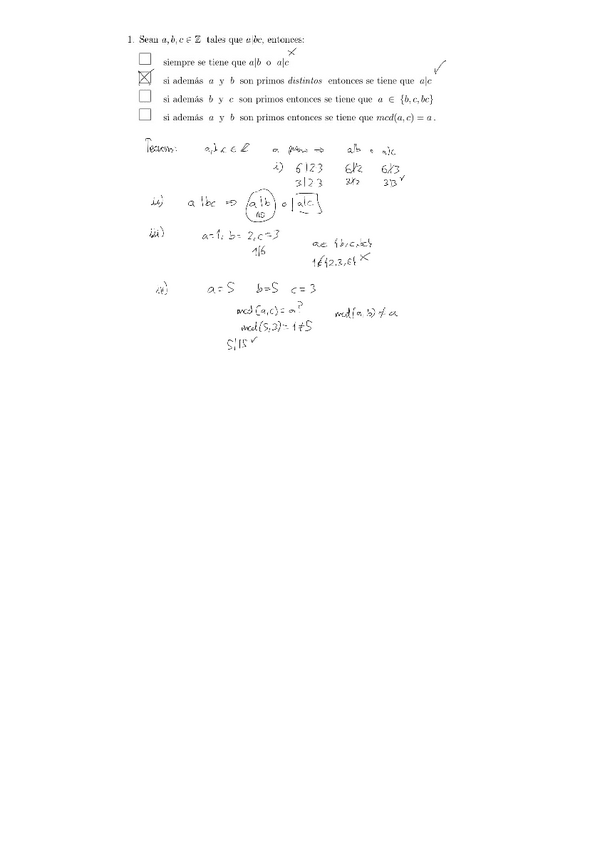 1. Sean a, b, c ∈ ℤ tales que a|bc, entonces:
siempre se tiene que a|b o a|c ×
☒ si además a y b son primos distintos entonces se tiene que a|c ✓
☐ si además b y c son primos entonces se tiene que a ∈ {b, c, bc}
☐ si además a y b son primos entonces se tiene que mcd(a, c) = a .
a, b, c ∈ ℤ a primo ⇒ a|b o a|c
i) 6|2·3 6∤2 6∤3
3|2·3 3∤2 3|3 ✓
ii) a|bc ⇒ a|b o a|c
NO
iii) a=1, b=2, c=3 a ∈ {b,c,bc}
1|6 1∉{2,3,6} ×
a=5 b=5 c=3
mcd(a,c)=a? mcd(a,b) ≠ a
mcd(5,3)=1≠5
5|15 ✓